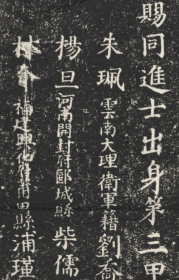 賜同進士出身第三甲
朱珮 雲南大理衛軍籍 劉
楊旦 河南開封府郾城縣 柴儒
林 福建興化府莆田縣 浦瑾